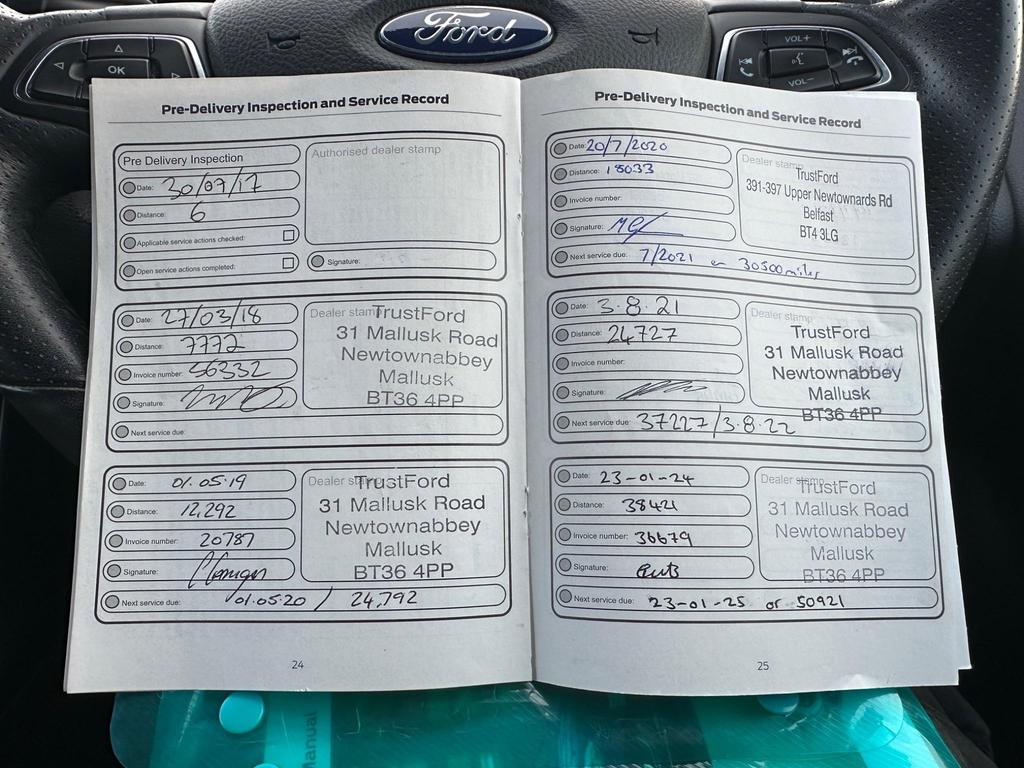 VOL+
OK
VOL−
Ford
Pre-Delivery Inspection and Service Record
Pre Delivery Inspection
Authorised dealer stamp
Date: 30/09/17
Distance: 6
Applicable service actions checked:
Open service actions completed:
Signature:
Date: 27/03/18
Distance: 7772
Invoice number: 46332
Signature:
Next service due:
Dealer stamp
TrustFord
31 Mallusk Road
Newtownabbey
Mallusk
BT36 4PP
Date: 01.05.19
Distance: 12,292
Invoice number: 20787
Signature:
Next service due: 01.05.20 / 24,792
Dealer stamp
TrustFord
31 Mallusk Road
Newtownabbey
Mallusk
BT36 4PP
24
Pre-Delivery Inspection and Service Record
Date: 20/7/2020
Distance: 18033
Invoice number:
Signature:
Next service due: 7/2021 or 30500miles
Dealer stamp
TrustFord
391-397 Upper Newtownards Rd
Belfast
BT4 3LG
Date: 3.8.21
Distance: 24727
Invoice number:
Signature:
Next service due: 37227/3.8.22
Dealer stamp
TrustFord
31 Mallusk Road
Newtownabbey
Mallusk
BT36 4PP
Date: 23-01-24
Distance: 38421
Invoice number: 36679
Signature:
Next service due: 23-01-25 or 50921
Dealer stamp
TrustFord
31 Mallusk Road
Newtownabbey
Mallusk
BT36 4PP
25
Manual